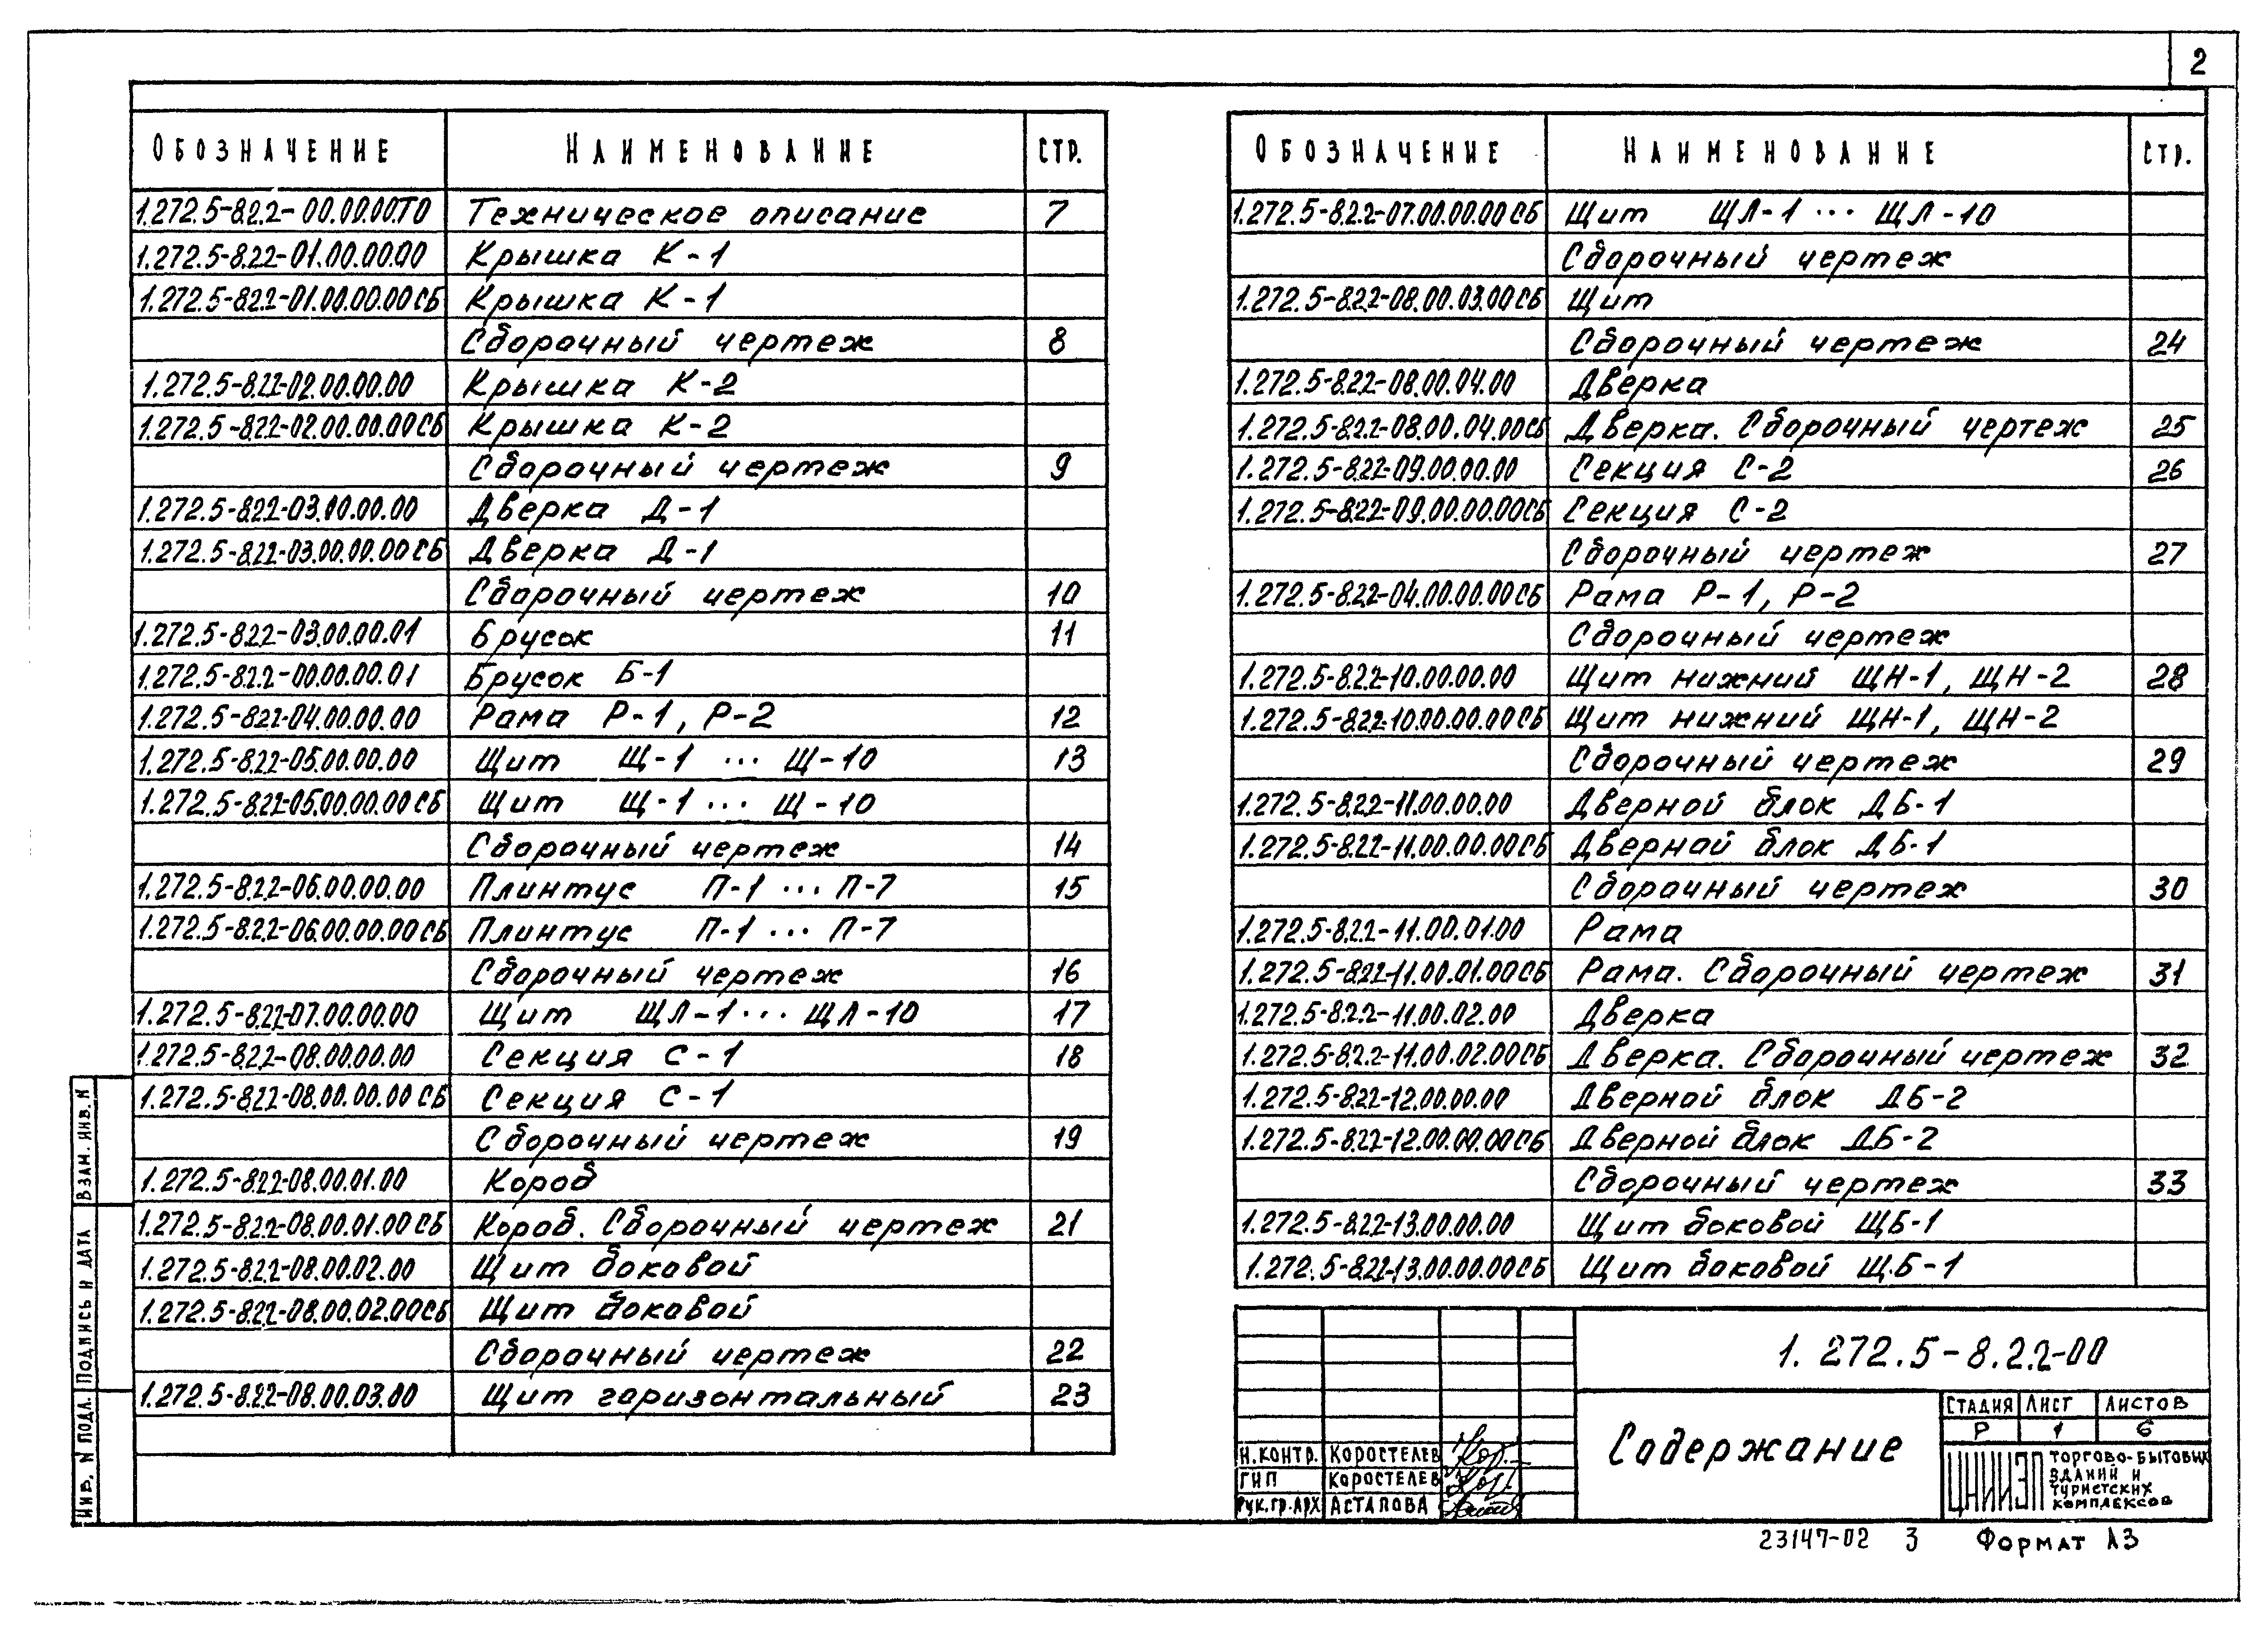 2
Обозначение Наименование Стр.
1.272.5-8.2.2-00.00.00ТО Техническое описание 7
1.272.5-8.2.2-01.00.00.00 Крышка К-1
1.272.5-8.2.2-01.00.00.00СБ Крышка К-1
Сборочный чертеж 8
1.272.5-8.2.2-02.00.00.00 Крышка К-2
1.272.5-8.2.2-02.00.00.00СБ Крышка К-2
Сборочный чертеж 9
1.272.5-8.2.2-03.00.00.00 Дверка Д-1
1.272.5-8.2.2-03.00.00.00СБ Дверка Д-1
Сборочный чертеж 10
1.272.5-8.2.2-03.00.00.01 Брусок 11
1.272.5-8.2.2-00.00.00.01 Брусок Б-1
1.272.5-8.2.2-04.00.00.00 Рама Р-1, Р-2 12
1.272.5-8.2.2-05.00.00.00 Щит Щ-1 ... Щ-10 13
1.272.5-8.2.2-05.00.00.00СБ Щит Щ-1 ... Щ-10
Сборочный чертеж 14
1.272.5-8.2.2-06.00.00.00 Плинтус П-1 ... П-7 15
1.272.5-8.2.2-06.00.00.00СБ Плинтус П-1 ... П-7
Сборочный чертеж 16
1.272.5-8.2.2-07.00.00.00 Щит ЩЛ-1 ... ЩЛ-10 17
1.272.5-8.2.2-08.00.00.00 Секция С-1 18
1.272.5-8.2.2-08.00.00.00СБ Секция С-1
Сборочный чертеж 19
1.272.5-8.2.2-08.00.01.00 Короб
1.272.5-8.2.2-08.00.01.00СБ Короб. Сборочный чертеж 21
1.272.5-8.2.2-08.00.02.00 Щит боковой
1.272.5-8.2.2-08.00.02.00СБ Щит боковой
Сборочный чертеж 22
1.272.5-8.2.2-08.00.03.00 Щит горизонтальный 23
Обозначение Наименование Стр.
1.272.5-8.2.2-07.00.00.00СБ Щит ЩЛ-1 ... ЩЛ-10
Сборочный чертеж
1.272.5-8.2.2-08.00.03.00СБ Щит
Сборочный чертеж 24
1.272.5-8.2.2-08.00.04.00 Дверка
1.272.5-8.2.2-08.00.04.00СБ Дверка. Сборочный чертеж 25
1.272.5-8.2.2-09.00.00.00 Секция С-2 26
1.272.5-8.2.2-09.00.00.00СБ Секция С-2
Сборочный чертеж 27
1.272.5-8.2.2-04.00.00.00СБ Рама Р-1, Р-2
Сборочный чертеж
1.272.5-8.2.2-10.00.00.00 Щит нижний ЩН-1, ЩН-2 28
1.272.5-8.2.2-10.00.00.00СБ Щит нижний ЩН-1, ЩН-2
Сборочный чертеж 29
1.272.5-8.2.2-11.00.00.00 Дверной блок ДБ-1
1.272.5-8.2.2-11.00.00.00СБ Дверной блок ДБ-1
Сборочный чертеж 30
1.272.5-8.2.2-11.00.01.00 Рама
1.272.5-8.2.2-11.00.01.00СБ Рама. Сборочный чертеж 31
1.272.5-8.2.2-11.00.02.00 Дверка
1.272.5-8.2.2-11.00.02.00СБ Дверка. Сборочный чертеж 32
1.272.5-8.2.2-12.00.00.00 Дверной блок ДБ-2
1.272.5-8.2.2-12.00.00.00СБ Дверной блок ДБ-2
Сборочный чертеж 33
1.272.5-8.2.2-13.00.00.00 Щит боковой ЩБ-1
1.272.5-8.2.2-13.00.00.00СБ Щит боковой ЩБ-1
Взам. инв. N
Подпись и дата
Инв. N подл.
1.272.5-8.2.2-00
Содержание
Стадия Лист Листов
Р 1 6
Н.контр. Коростелев
ГИП Коростелев
Рук.гр.арх Астапова
ЦНИИЭП торгово-бытовых
зданий и
туристских
комплексов
23147-02 3 Формат А3